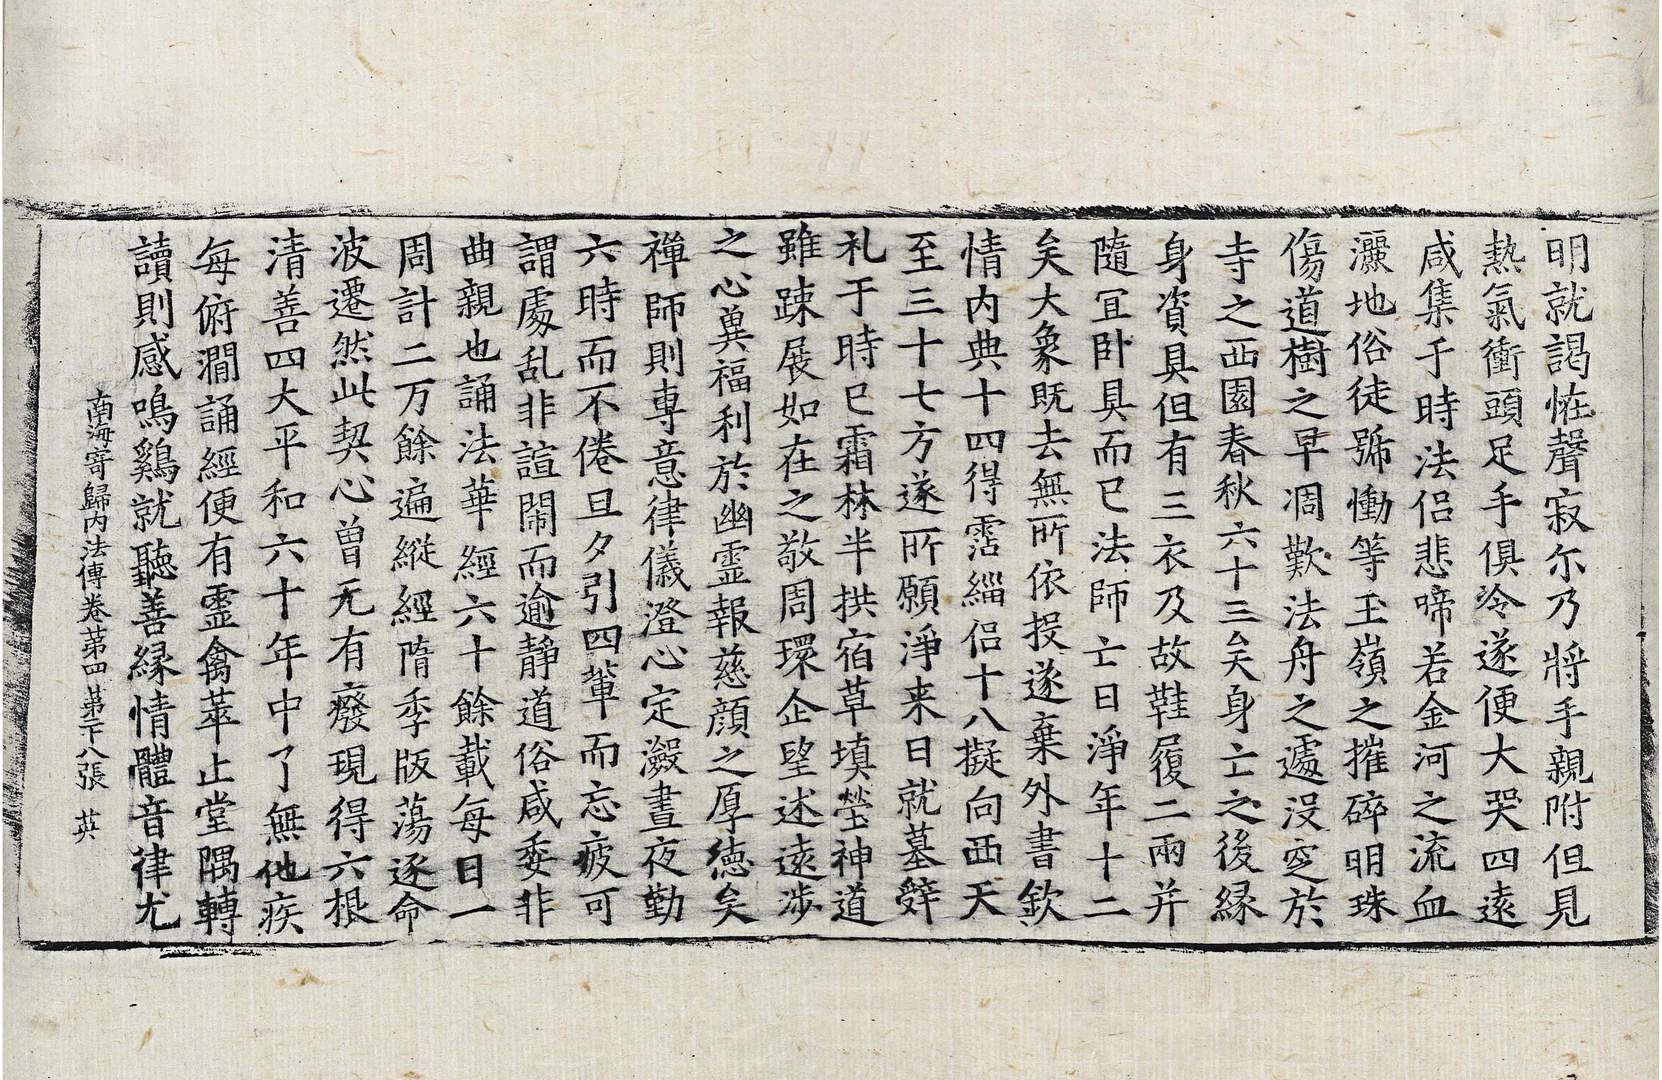 明就謁恠聲寂尒乃將手親附但見
熱氣衝頭足手俱冷遂便大哭四遠
咸集于時法侶悲啼若金河之流血
灑地俗徒號慟等玉嶺之摧碎明珠
傷道樹之早凋歎法舟之遽没窆於
寺之西園春秋六十三矣身亡之後緣
身資具但有三衣及故鞋履二兩并
隨冝卧具而已法師亡日淨年十二
矣大象既去無所依投遂棄外書欽
情内典十四得霑緇侶十八擬向西天
至三十七方遂所願淨来日就墓辤
礼于時已霜林半拱宿草填塋神道
雖踈展如在之敬周環企望述遠涉
之心兾福利於幽靈報慈顔之厚德矣
禪師則專意律儀澄心定瀲晝夜勤
六時而不倦旦夕引四輩而忘疲可
謂處乱非諠閙而逾靜道俗咸委非
曲親也誦法華經六十餘載每日一
周計二万餘遍縱經隋季版蕩逐命
波遷然此契心曾无有癈現得六根
清善四大平和六十年中了無他疾
每俯澗誦經便有靈禽萃止堂隅轉
讀則感鳴鷄就聽善緣情體音律尤
南海寄歸内法傳卷第四 第十八張 英